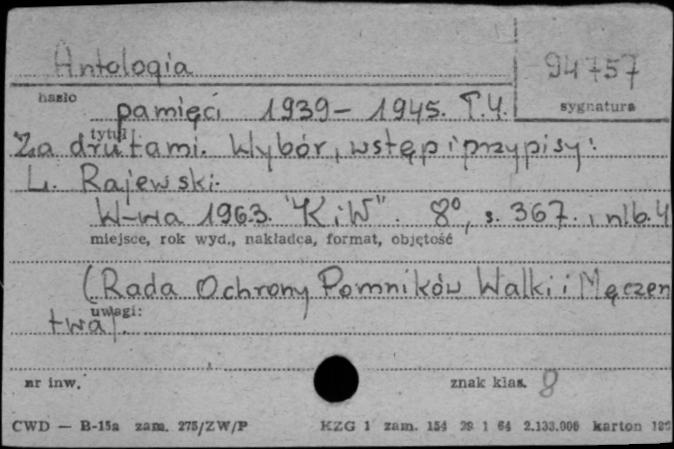 Antologia
94757
hasło
sygnatura
pamięci 1939 - 1945. T.4.
tytuł
Za drutami. Wybór, wstęp i przypisy:
L. Rajewski.
W-wa 1963. "KiW". 8°, s. 367., nlb. 4
miejsce, rok wyd., nakładca, format, objętość
(Rada Ochrony Pomników Walki i Męczen
uwagi:
twa).
nr inw.
znak klas. 8
CWD — B-15a zam. 275/ZW/P KZG 1 zam. 154 29 1 64 2.133.000 karton